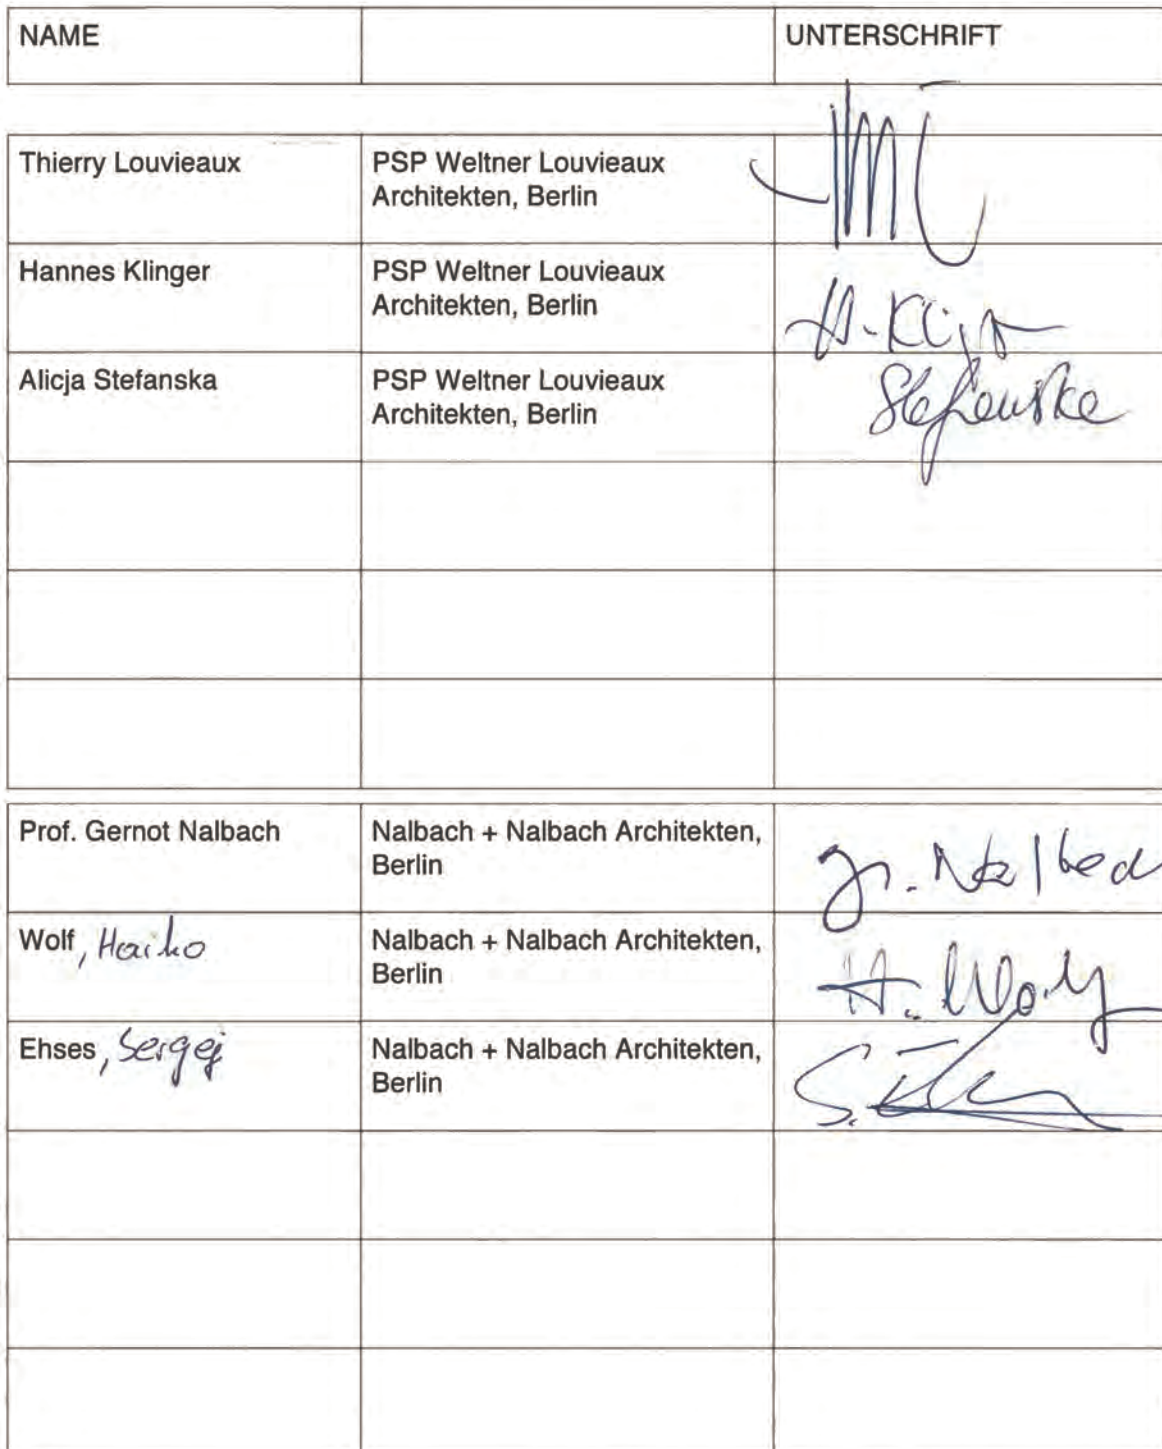 NAME UNTERSCHRIFT
Thierry Louvieaux PSP Weltner Louvieaux
Architekten, Berlin
Hannes Klinger PSP Weltner Louvieaux
Architekten, Berlin
H. Kli
Alicja Stefanska PSP Weltner Louvieaux
Architekten, Berlin
Stefanska
Prof. Gernot Nalbach Nalbach + Nalbach Architekten,
Berlin
G. Nalbach
Wolf, Haiko Nalbach + Nalbach Architekten,
Berlin
H. Wolf
Ehses, Sergej Nalbach + Nalbach Architekten,
Berlin